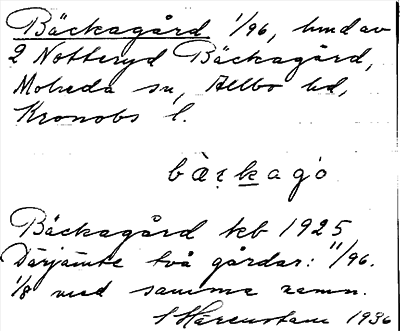 Bäckagård 1/96, hmd av
2 Notteryd Bäckagård,
Moheda sn, Allbo hd,
Kronobs l.
bàckagò
Bäckagård kb 1925
Därjämte två gårdar: 11/96.
1/8 med samma namn.
S Härenstam 1936